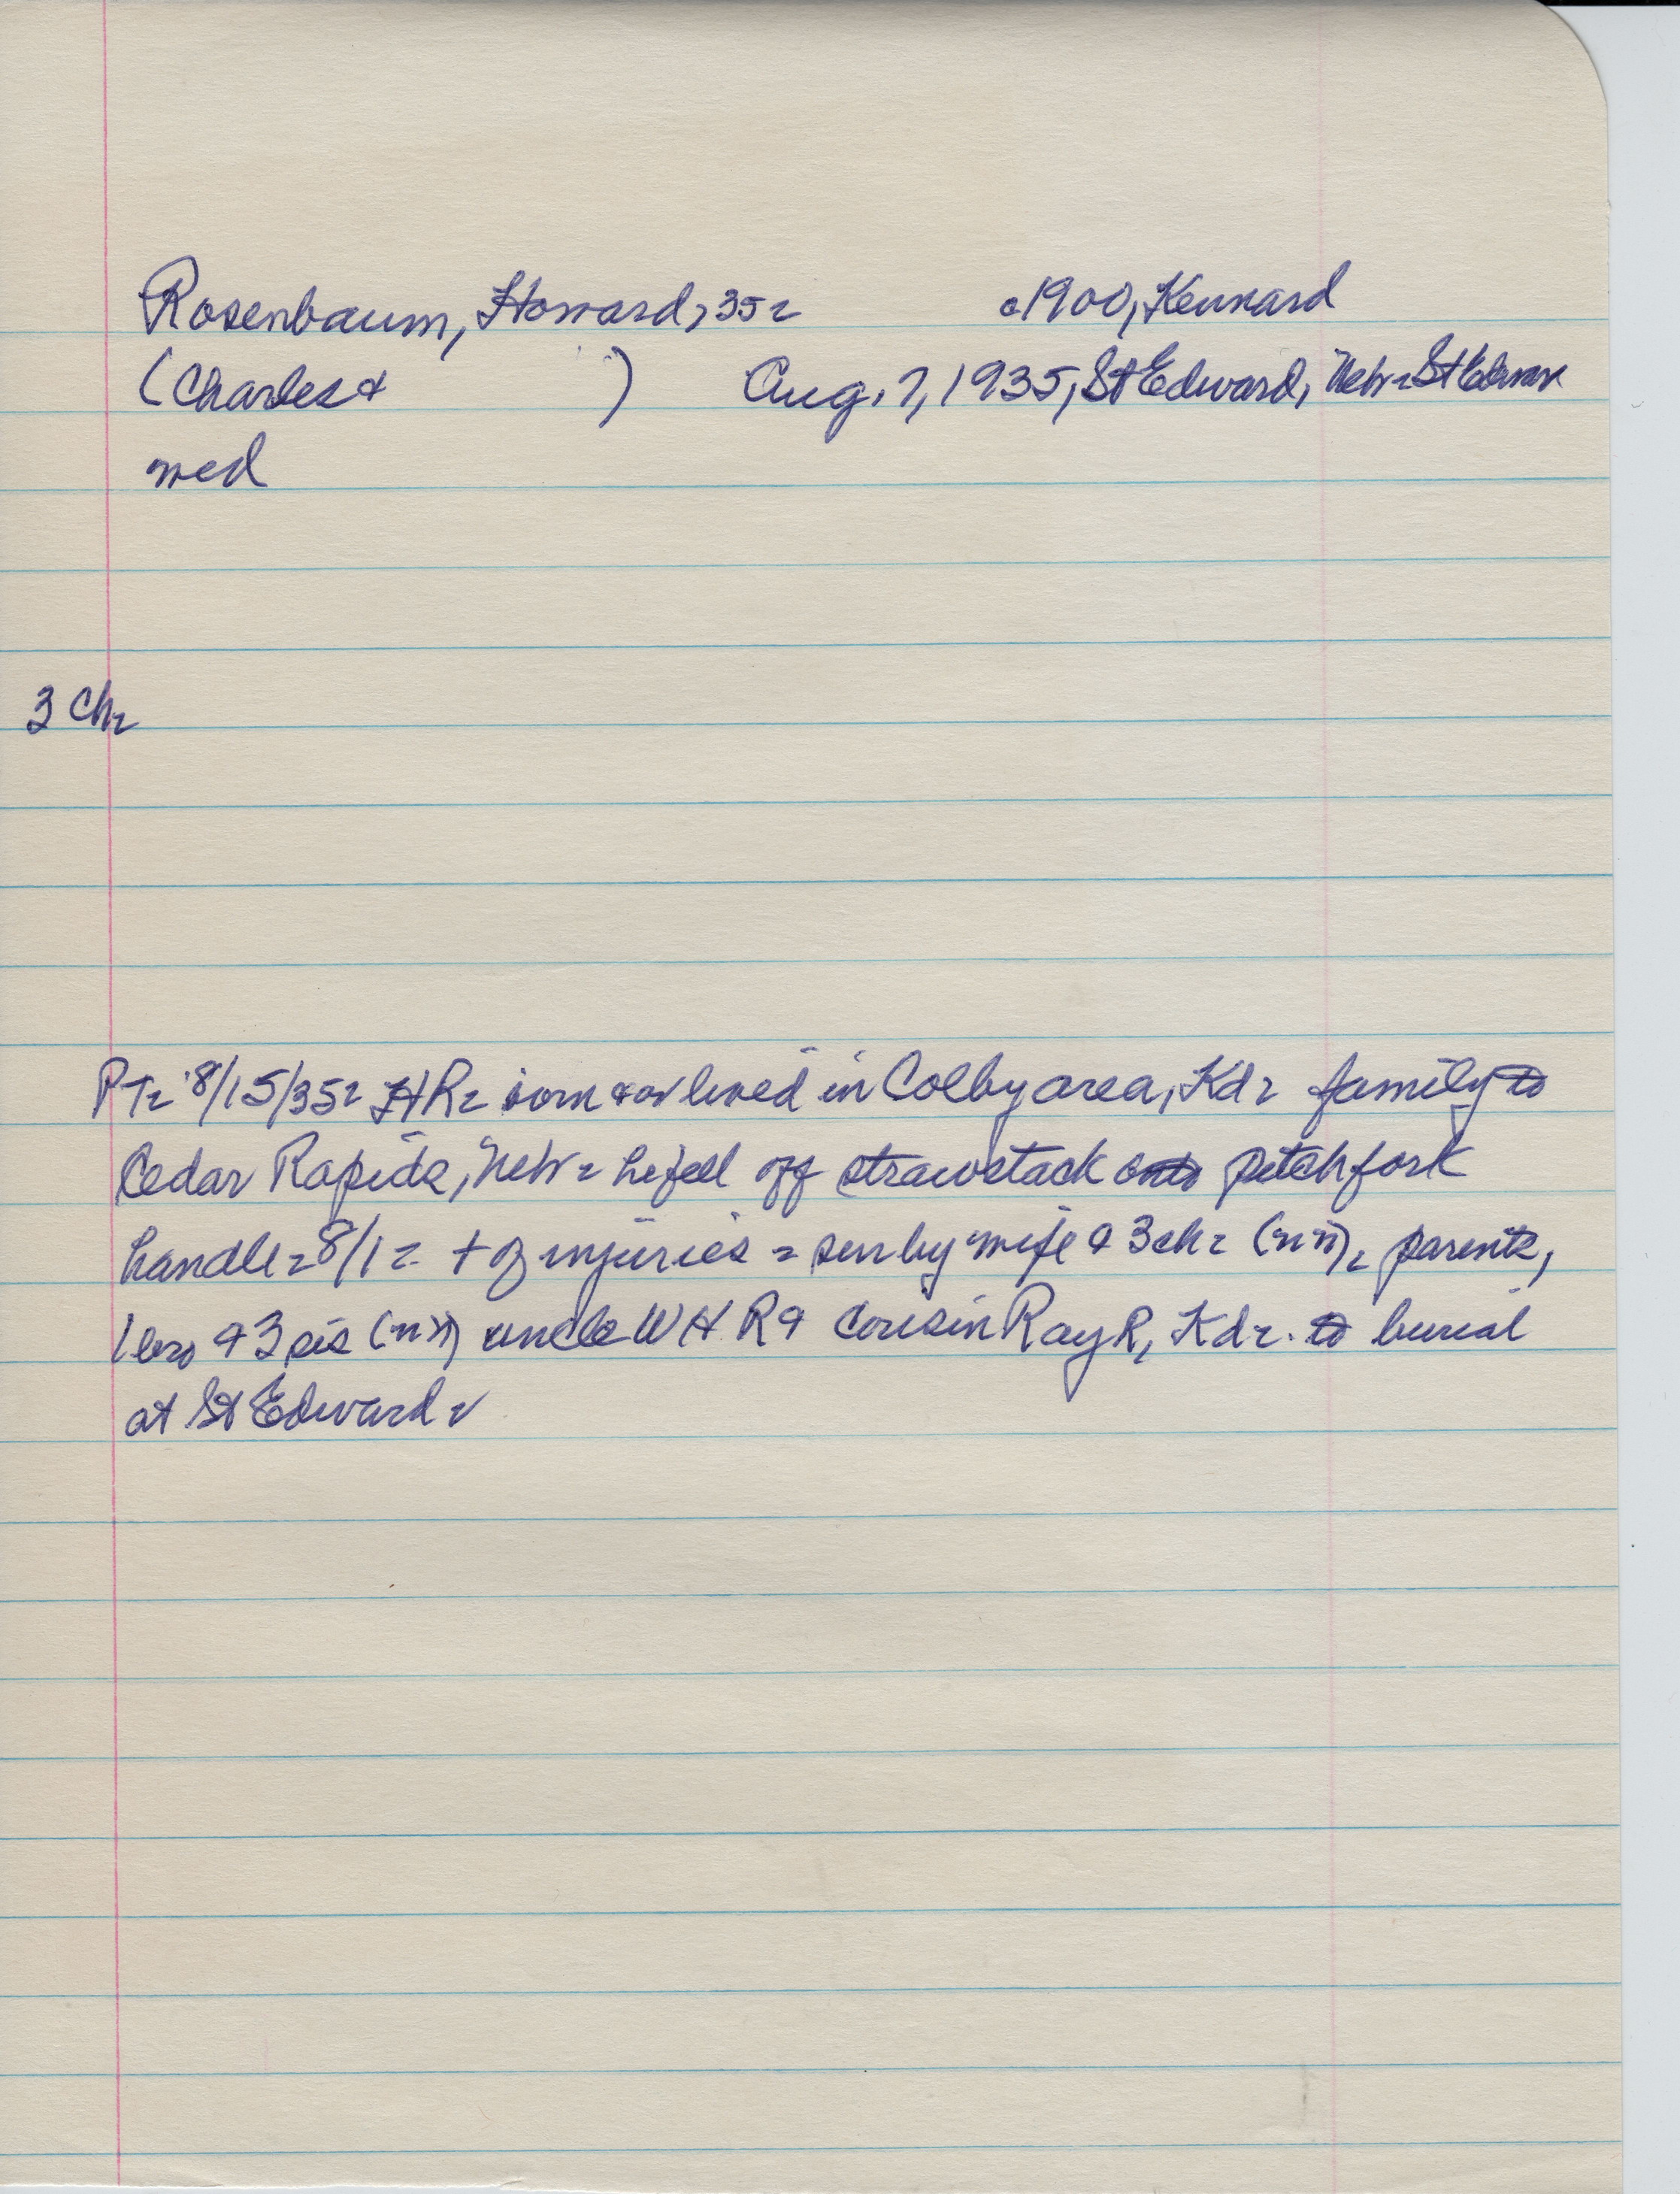 Rosenbaum, Howard, 35 c1900, Kennard
(Charles & ) Aug. 7, 1935, St Edward, Nebr St Edward
wed
3 Ch
PT 8/15/35 HR born & or lived in Colby area, Kd family to
Cedar Rapids, Nebr he fell off strawstack onto pitchfork
handle 8/1 + of injuries sur by wife & 3 ch (nn), parents,
1 bro & 3 sis (nn) uncle WH R & cousin Ray R, Kd to burial
at St Edward